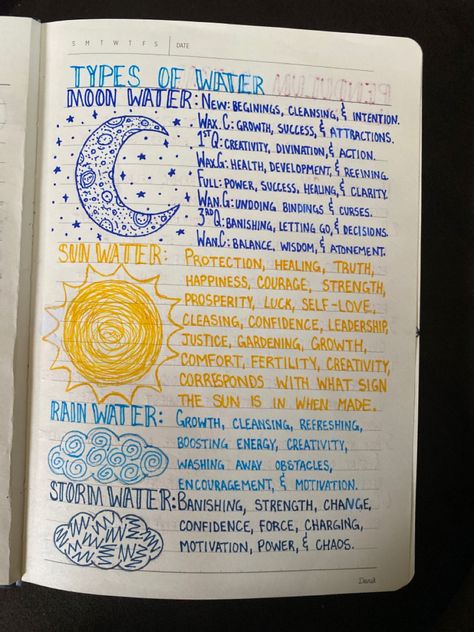 S M T W T F S DATE
TYPES OF WATER
MOON WATER: NEW: BEGININGS, CLEANSING, & INTENTION.
WAX.C: GROWTH, SUCCESS, & ATTRACTIONS.
1ST Q: CREATIVITY, DIVINATION, & ACTION.
WAX.G: HEALTH, DEVELOPMENT, & REFINING.
FULL: POWER, SUCCESS, HEALING, & CLARITY.
WAN.G: UNDOING BINDINGS & CURSES.
3RD Q: BANISHING, LETTING GO, & DECISIONS.
WAN.C: BALANCE, WISDOM, & ATONEMENT.
SUN WATER: PROTECTION, HEALING, TRUTH,
HAPPINESS, COURAGE, STRENGTH,
PROSPERITY, LUCK, SELF-LOVE,
CLEASING, CONFIDENCE, LEADERSHIP,
JUSTICE, GARDENING, GROWTH,
COMFORT, FERTILITY, CREATIVITY,
CORRESPONDS WITH WHAT SIGN
THE SUN IS IN WHEN MADE.
RAIN WATER: GROWTH, CLEANSING, REFRESHING,
BOOSTING ENERGY, CREATIVITY,
WASHING AWAY OBSTACLES,
ENCOURAGEMENT, & MOTIVATION.
STORM WATER: BANISHING, STRENGTH, CHANGE,
CONFIDENCE, FORCE, CHARGING,
MOTIVATION, POWER, & CHAOS.